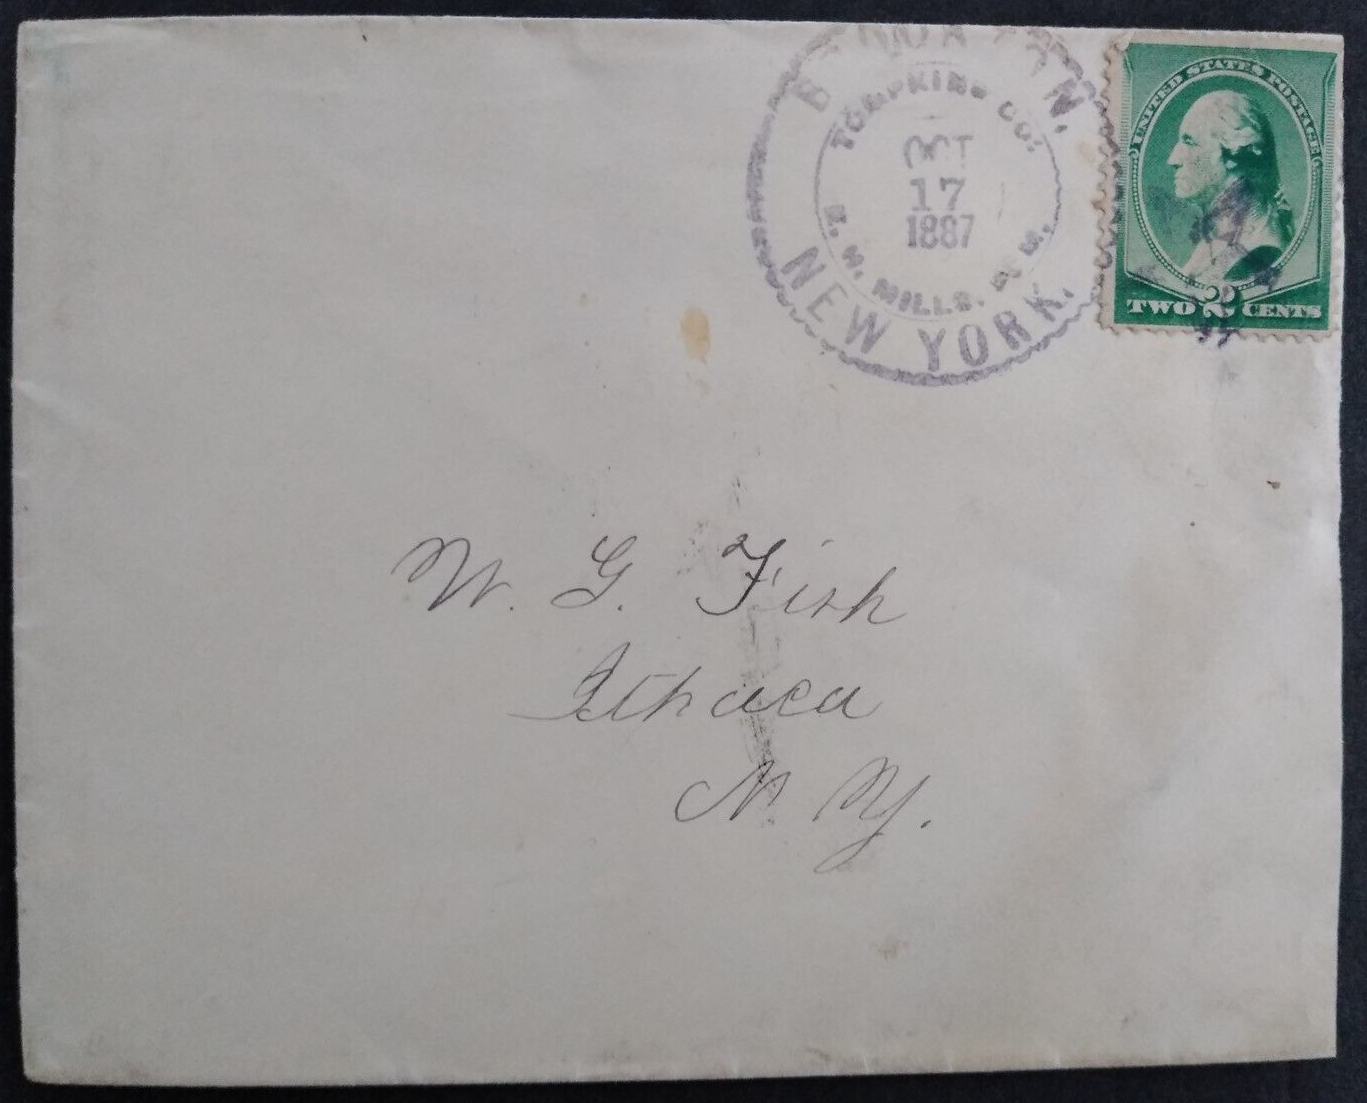 TOMPKINS CO.
OCT
17
1887
MILLS,
NEW YORK.
UNITED STATES POSTAGE
TWO 2 CENTS
W. G. Fish
Ithaca
N. Y.